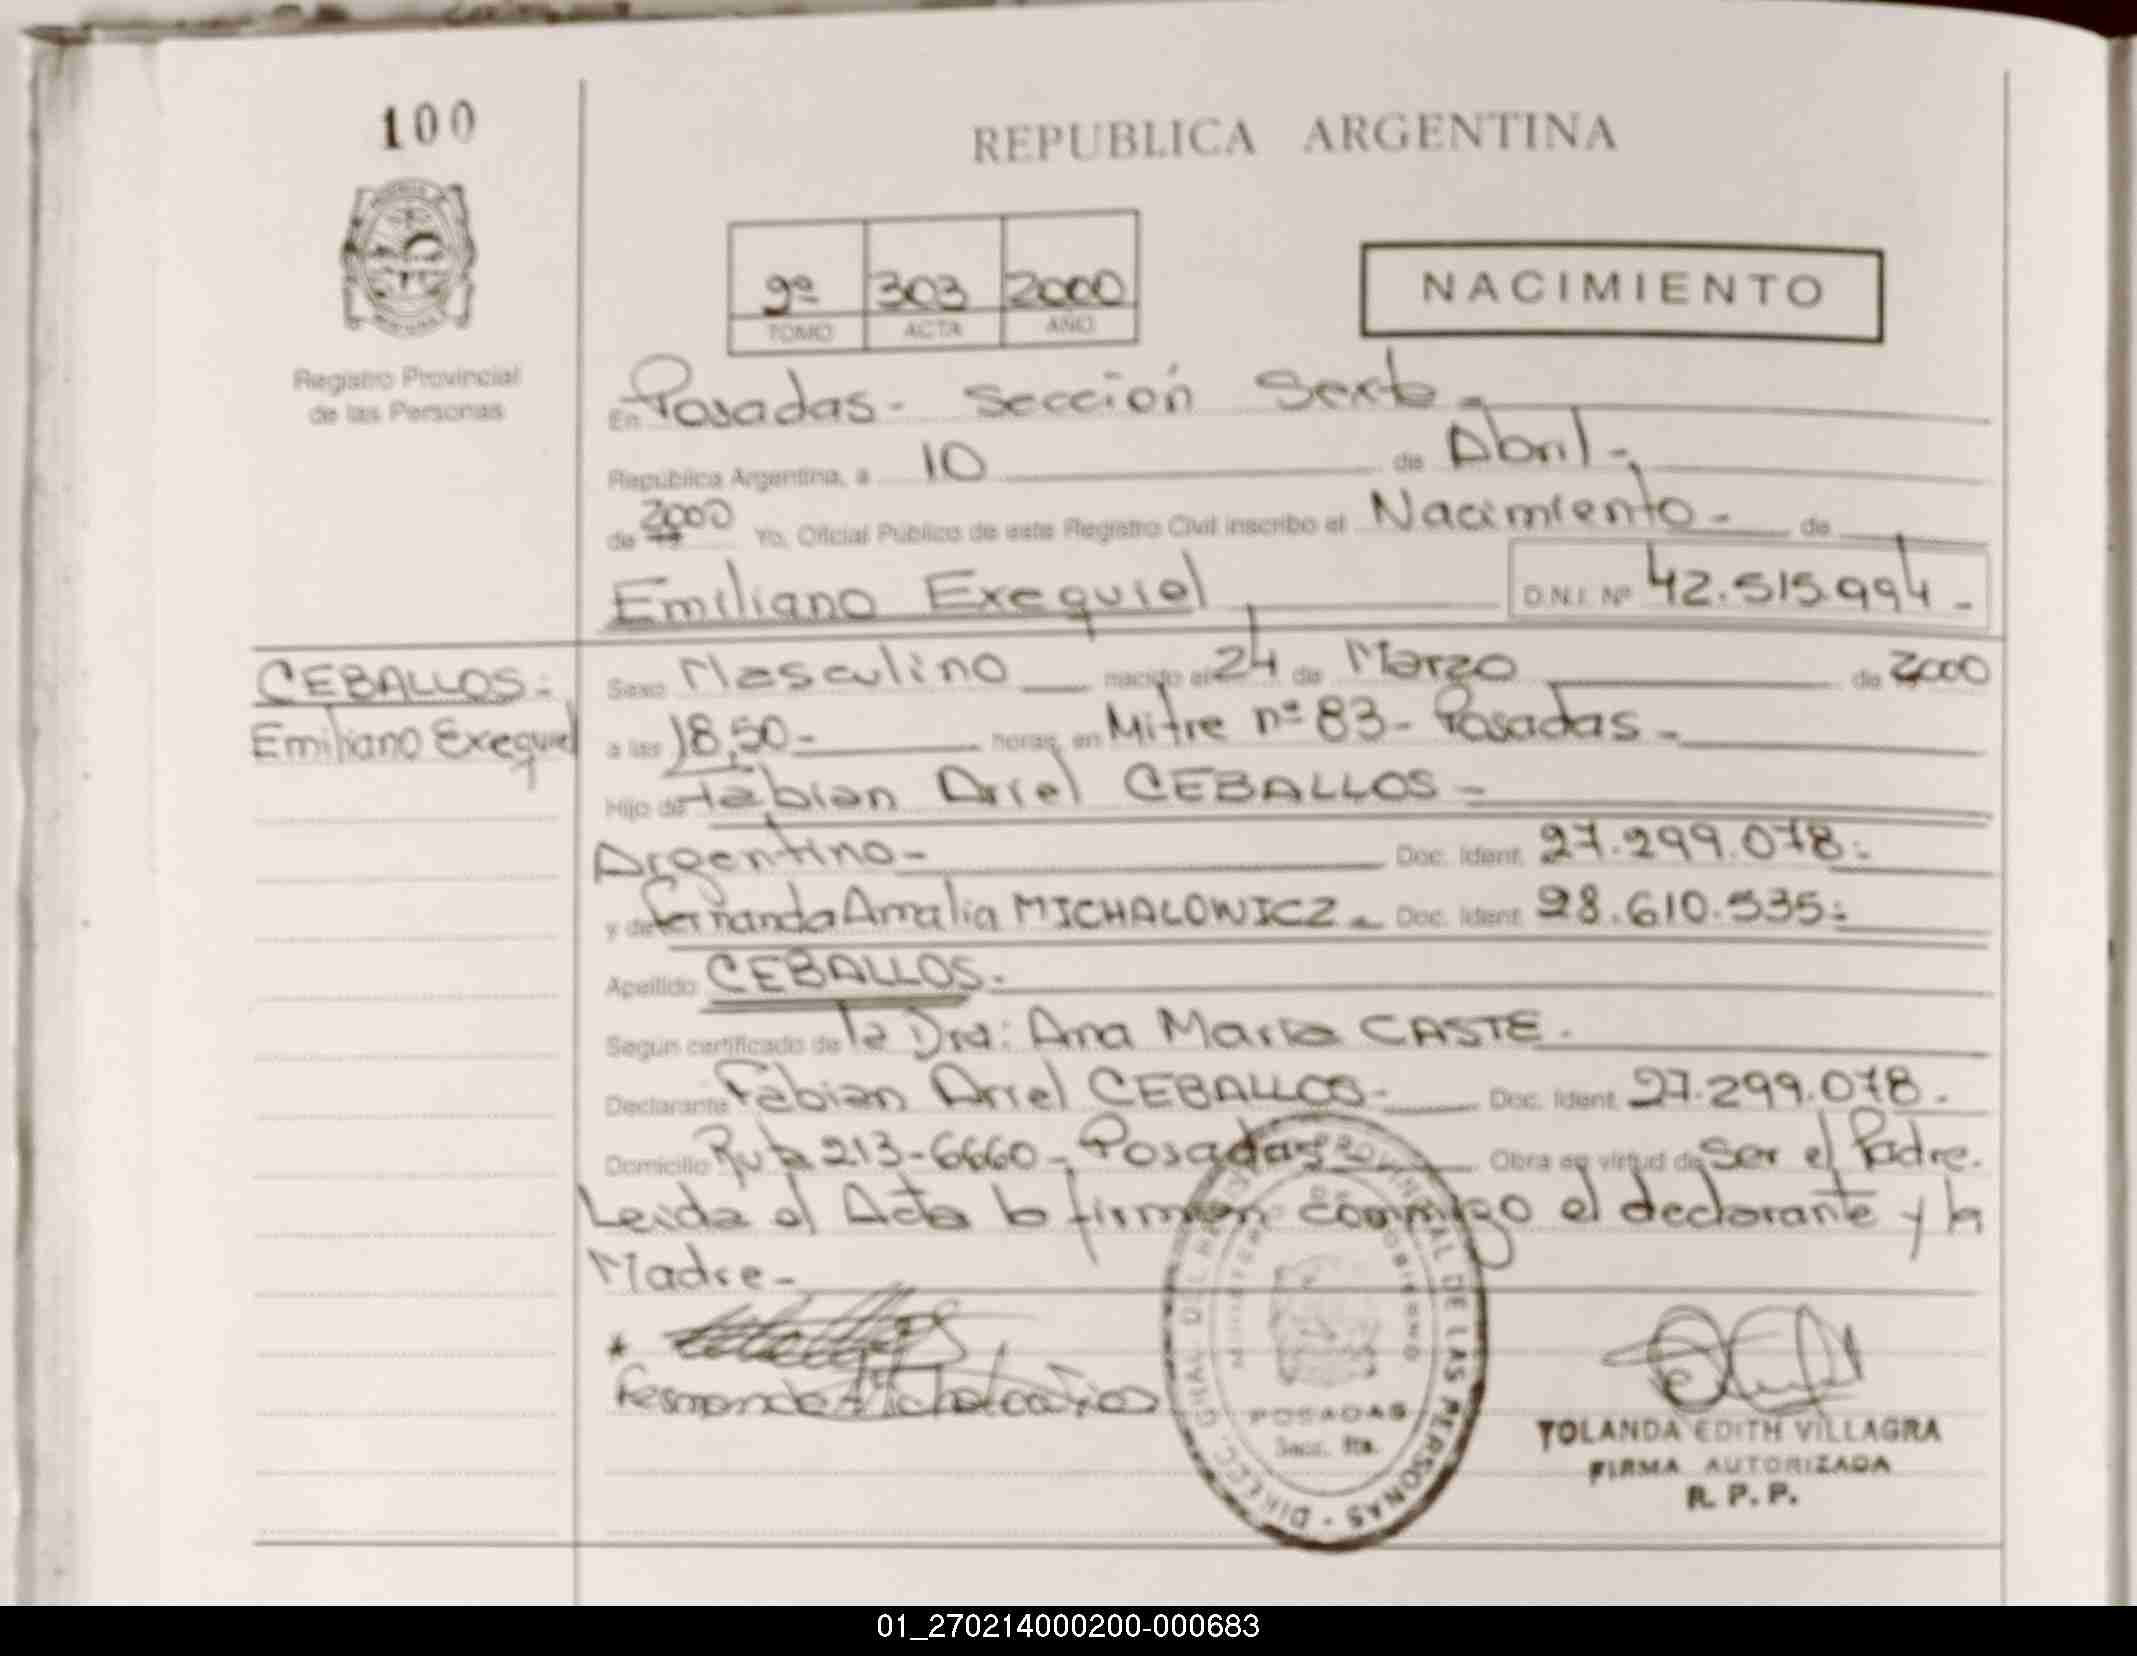 100
REPUBLICA ARGENTINA
9º 303 2000
TOMO ACTA AÑO
NACIMIENTO
Registro Provincial
de las Personas
En Posadas - Sección Sexta -
República Argentina, a 10 de Abril -
de 2000 Yo, Oficial Público de este Registro Civil inscribo el Nacimiento - de
Emiliano Exequiel D.N.I. Nº 42.515.994 -
CEBALLOS :
Emiliano Exequiel
Sexo Masculino nacido el 24 de Marzo de 2000
a las 18,50 - horas, en Mitre nº 83 - Posadas -
Hijo de Fabian Ariel CEBALLOS -
Argentino - Doc. Ident. 27.299.078 :
y de Fernanda Amalia MICHALOWICZ - Doc. Ident. 28.610.535 :
Apellido CEBALLOS -
Según certificado de la Dra: Ana Maria CASTE .
Declarante Fabian Ariel CEBALLOS - Doc. Ident. 27.299.078 .
Domicilio Ruta 213-6660 - Posadas Obra en virtud de Ser el Padre.
Leida el Acta la firman conmigo el declarante y la
Madre -
DIRECC. GRAL DEL REG. PROVINCIAL DE LAS PERSONAS -
MINISTERIO DE GOBIERNO
POSADAS
Secc. 6ta.
YOLANDA EDITH VILLAGRA
FIRMA AUTORIZADA
R. P. P.
01_270214000200-000683